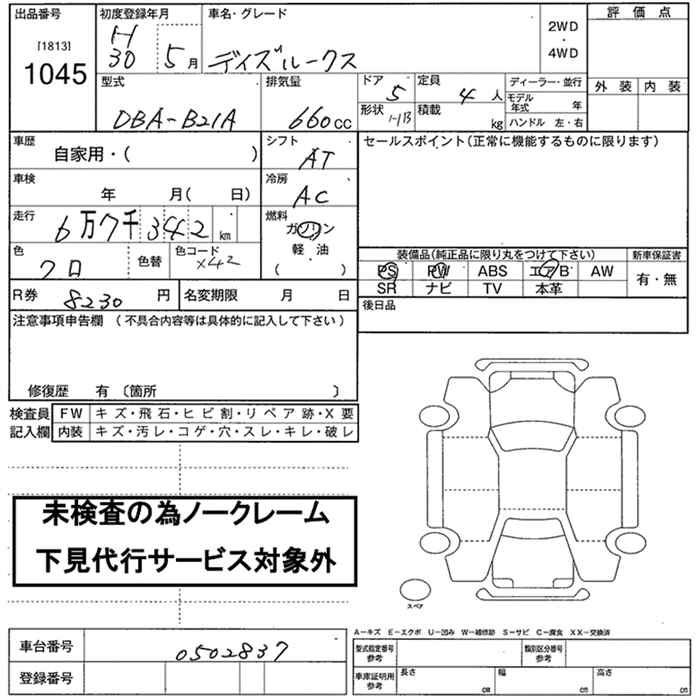 出品番号
[1813]
1045
初度登録年月
H
30 5 月
車名・グレード
デイズルークス
2WD
・
4WD
評価点
外装 内装
型式
DBA-B21A
排気量
660cc
ドア 5
形状 HB
定員 4 人
積載 kg
ディーラー・並行
モデル年式 年
ハンドル 左・右
車歴
自家用・( )
シフト
AT
車検
年 月( 日)
冷房
AC
走行
6万7千342 km
燃料
ガソリン
軽油
( )
色
クロ
色替
色コード
X42
R券 8230 円
名変期限 月 日
セールスポイント(正常に機能するものに限ります)
装備品(純正品に限り丸をつけて下さい)
新車保証書
PS PW ABS エアB AW
有・無
SR ナビ TV 本革
後日品
注意事項申告欄 (不具合内容等は具体的に記入して下さい)
修復歴 有 〔箇所 〕
検査員
記入欄
FW キズ・飛石・ヒビ割・リペア跡・X要
内装 キズ・汚レ・コゲ・穴・スレ・キレ・破レ
未検査の為ノークレーム
下見代行サービス対象外
スペア
A-キズ E-エクボ U-凹み W-補修跡 S-サビ C-腐食 XX-交換済
車台番号 0502837
登録番号
型式指定番号
参考
類別区分番号
参考
車庫証明用
参考
長さ cm
幅 cm
高さ cm